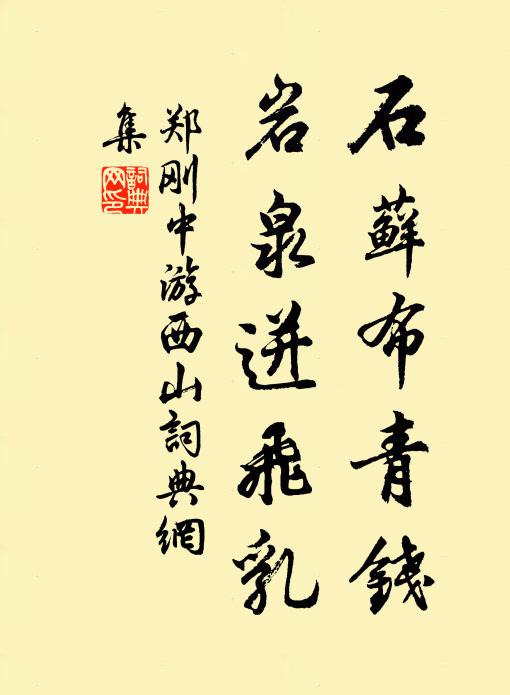 石藓布青錢
岩泉迸飛乳
郑刚中游西山詞典網
集
詞典
网印